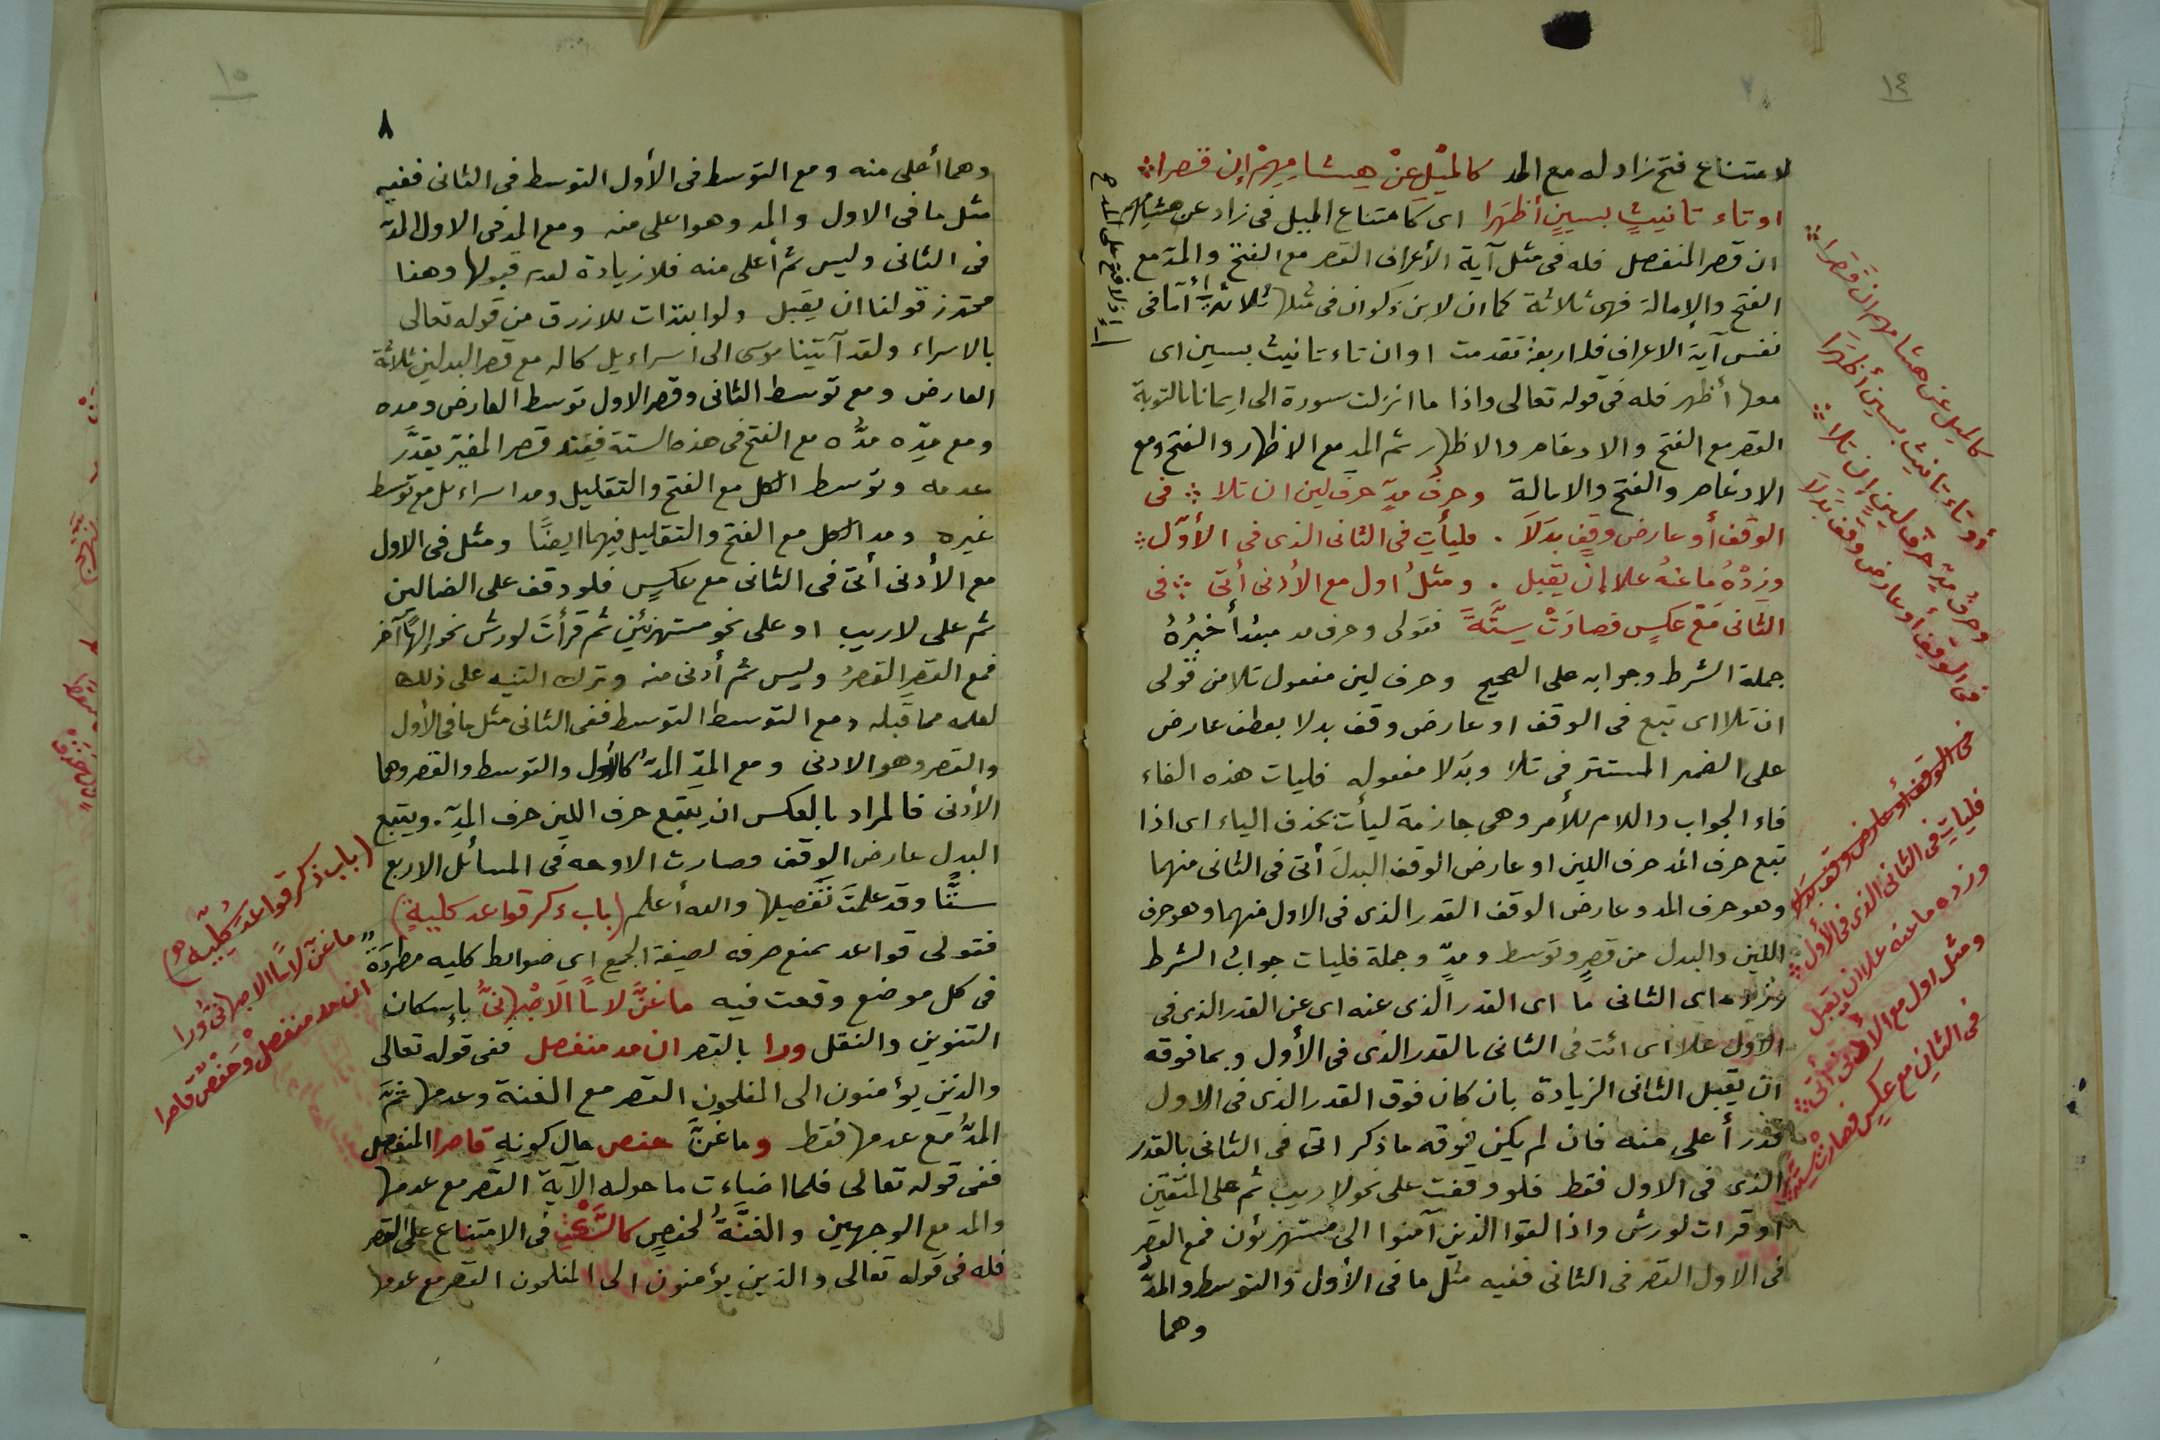 ١٤
لامتناع فتح زاد له مع المد كالميل عن هشامهم إن قصرا
او تاء تانيث بسين أظهرا اى كامتناع الميل فى زاد عن هشامهم
ان قصر المنفصل فله فى مثل آية الأعراف القصر مع الفتح والمد مع
الفتح والإمالة فهى ثلاثة كما ان لابن ذكوان فى مثلها ثلاثة أما فى
نفس آية الاعراف فله اربعة تقدمت او ان تاء تانيث بسين اى
معها أظهر فله فى قوله تعالى واذا ما انزلت سورة الى ايمانا بالتوبة
القصر مع الفتح والادغام والاظهار ثم المد مع الاظهار والفتح ومع
الادغام والفتح والامالة وحرف مدٍّ حرف لين ان تلا فى
الوقف أو عارض وقفٍ بدَلَا . فليأتِ فى الثانى الذى فى الأوّل
وزدْهُ ما عنهُ علا إن يقبل . ومثلُ اول مع الأدنى أتى فى
الثانى مَعْ عكسٍ فصارَتْ سِتَّةً فقولى وحرف مد مبتدأ خبرُهُ
جملة الشرط وجوابه على الصحيح وحرف لين مفعول تلا من قولى
ان تلا اى تبع فى الوقف او عارض وقف بدلا بعطف عارض
على الضمير المستتر فى تلا وبدلا مفعوله فليات هذه الفاء
فاء الجواب واللام للأمر وهى جازمة ليأت بحذف الياء اى اذا
تبع حرف المد حرف اللين او عارض الوقف البدلَ أتى فى الثانى منهما
وهو حرف المد وعارض الوقف القدر الذى فى الاول منهما وهو حرف
اللين والبدل من قصرٍ وتوسط ومدٍّ وجملة فليات جواب الشرط
وزده اى الثانى ما اى القدر الذى عنه اى عن القدر الذى فى
الأول علا اى ائت فى الثانى بالقدر الذى فى الأول وبما فوقه
ان يقبل الثانى الزيادة بان كان فوق القدر الذى فى الاول
قدر أعلى منه فان لم يكن فوقه ما ذكر اتى فى الثانى بالقدر
الذى فى الاول فقط فلو وقفت على نحو لا ريب ثم على المتقين
او قرات لورش واذا لقوا الذين آمنوا الى مستهزئون فمع القصر
فى الاول القصر فى الثانى ففيه مثل ما فى الأول والتوسط والمدّ
وهما
كالميل عن هشامهم إن قصرا
أو تاء تانيث بسين أظهرا
وحرف مدٍّ حرف لين إن تلا
فى الوقف أو عارض وقف بدلا
فى الوقف أو عارض وقف بدلا
فليات فى الثانى الذى فى الأول
وزده ما عنه علا ان يقبل
ومثل اول مع الأدنى أتى
فى الثانى مع عكسٍ فصارت ستة
١٥
٨
وهما أعلى منه ومع التوسط فى الأول التوسط فى الثانى ففيه
مثل ما فى الاول والمد وهو اعلى منه ومع المد فى الاول المد
فى الثانى وليس ثم أعلى منه فلا زيادة لعدم قبولها وهذا
محترز قولنا ان يقبل ولو ابتدات للازرق من قوله تعالى
بالاسراء ولقد آتينا موسى الى اسراءيل كاله مع قصر البدلين ثلاثة
العارض ومع توسط الثانى وقصر الاول توسط العارض ومده
ومع مدِّه مدُّه مع الفتح فى هذه الستة فعند قصر المغيّر يقدَّر
عدمه وتوسط الكل مع الفتح والتقليل ومد اسراءيل مع توسط
غيره ومد الكل مع الفتح والتقليل فيهما ايضًا ومثل فى الاول
مع الأدنى أتى فى الثانى مع عكسٍ فلو وقف على الضالين
ثم على لا ريب او على نحو مستهزئين ثم قرأت لورش نحو إلهًا آخر
فمع القصر القصرُ وليس ثم أدنى منه وترك التنبيه على ذلك
لعلمه مما قبله ومع التوسط التوسط ففى الثانى مثل ما فى الأول
والقصر وهو الادنى ومع المدّ المدّ كالأول والتوسط والقصر وهما
الأدنى فالمراد بالعكس ان يتبع حرف اللين حرف المدّ. ويتبع
البدل عارض الوقف وصارت الاوجه فى المسائل الاربع
ستًّا وقد علمت تفصيلها والله أعلم (باب ذكر قواعد كليةٍ)
فقولى قواعد بمنع صرفه لصيغة الجمع اى ضوابط كليه مطردَة
فى كل موضع وقعت فيه ما غنَّ لاسًا الَاصْبهانىُّ بإسكان
التنوين والنقل ورا بالقصر ان مد منفصل ففى قوله تعالى
والذين يؤمنون الى المفلحون القصر مع الغنة وعدمها ثمّ
المدُّ مع عدمها فقط وما غنَّ حفص حال كونه قاصرا المنفصل
ففى قوله تعالى فلما اضاءت ما حوله الآية القصر مع عدمها
والمد مع الوجهين والغنَّةُ لحفصٍ فى الامتناع على القصر
فله فى قوله تعالى والذين يؤمنون الى المفلحون القصر مع عدمها
(باب ذكر قواعد كُلّيه)
ما غنّ لاسًا الاصبهانى ورا
ان مد منفصل وحفص قاصرا